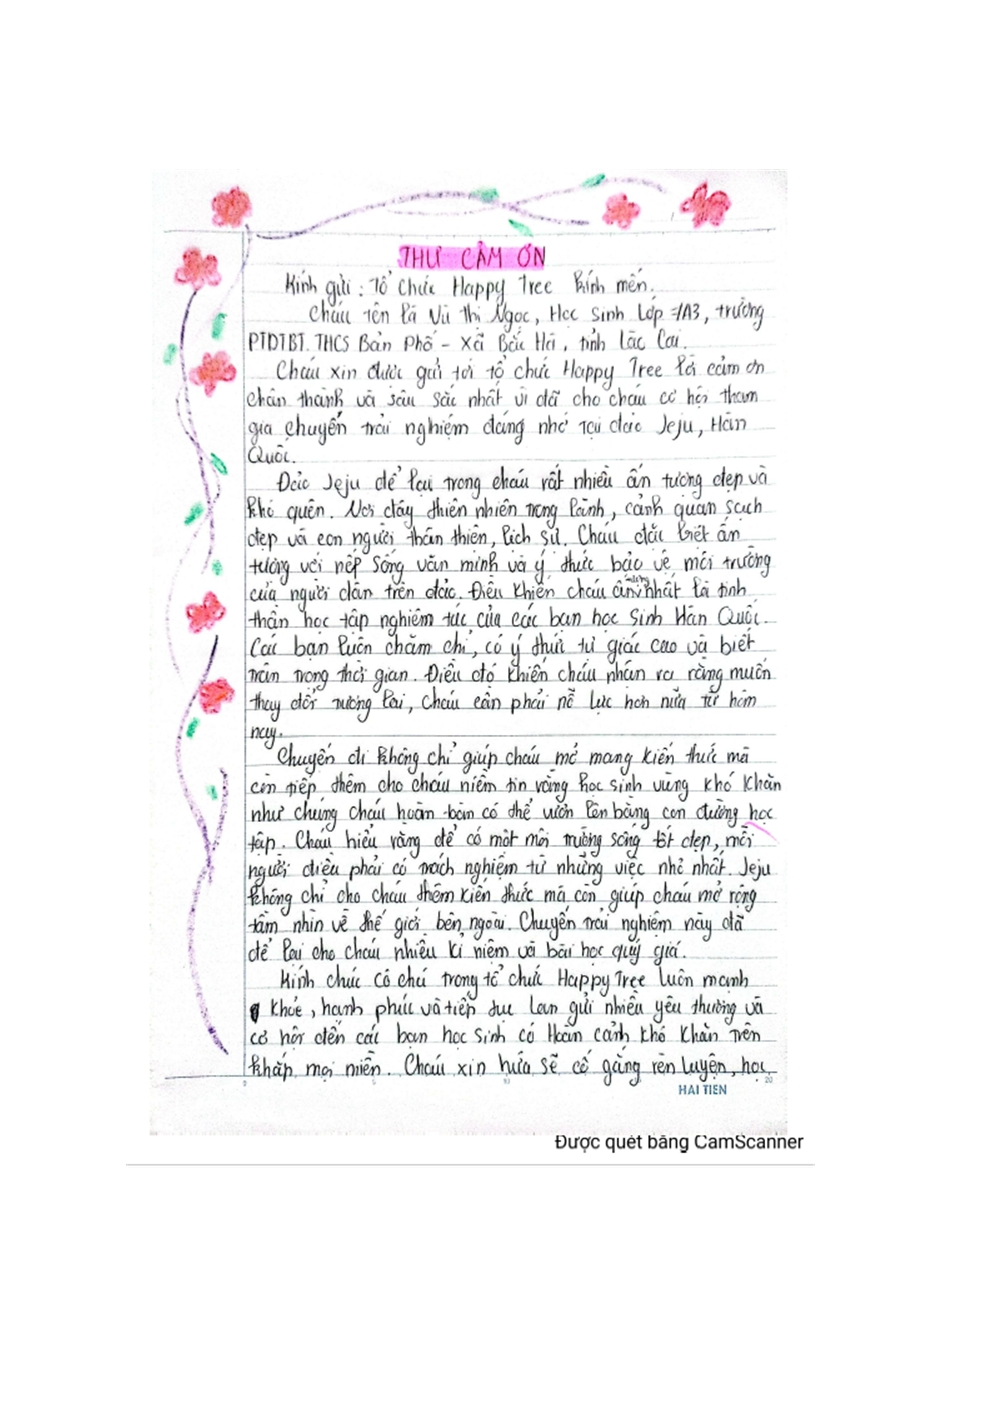 THƯ CẢM ƠN
Kính gửi : Tổ chức Happy Tree kính mến.
Cháu tên là Vũ Thị Ngọc, Học sinh Lớp 7A3, trường
PTDTBT. THCS Bản Phố - Xã Bắc Hà, tỉnh Lào Cai.
Cháu xin được gửi tới tổ chức Happy Tree lời cảm ơn
chân thành và sâu sắc nhất vì đã cho cháu cơ hội tham
gia chuyến trải nghiệm đáng nhớ tại đảo Jeju, Hàn
Quốc.
Đảo Jeju để lại trong cháu rất nhiều ấn tượng đẹp và
khó quên. Nơi đây thiên nhiên trong lành, cảnh quan sạch
đẹp và con người thân thiện, lịch sự. Cháu đặc biệt ấn
tượng với nếp sống văn minh và ý thức bảo vệ môi trường
của người dân trên đảo. Điều khiến cháu ấn tượng nhất là tinh
thần học tập nghiêm túc của các bạn học sinh Hàn Quốc.
Các bạn luôn chăm chỉ, có ý thức tự giác cao và biết
trân trọng thời gian. Điều đó khiến cháu nhận ra rằng muốn
thay đổi tương lai, cháu cần phải nỗ lực hơn nữa từ hôm
nay.
Chuyến đi không chỉ giúp cháu mở mang kiến thức mà
còn tiếp thêm cho cháu niềm tin rằng học sinh vùng khó khăn
như chúng cháu hoàn toàn có thể vươn lên bằng con đường học
tập. Cháu hiểu rằng để có một môi trường sống tốt đẹp, mỗi
người điều phải có trách nghiệm từ những việc nhỏ nhất. Jeju
không chỉ cho cháu thêm kiến thức mà còn giúp cháu mở rộng
tầm nhìn về thế giới bên ngoài. Chuyến trải nghiệm này đã
để lại cho cháu nhiều kỉ niệm và bài học quý giá.
Kính chúc cô chú trong tổ chức Happy Tree luôn mạnh
khỏe, hạnh phúc và tiếp tục lan gửi nhiều yêu thương và
cơ hội đến các bạn học sinh có Hoàn cảnh khó khăn trên
khắp mọi miền. Cháu xin hứa sẽ cố gắng rèn luyện, học
HAI TIEN
Được quét bằng CamScanner